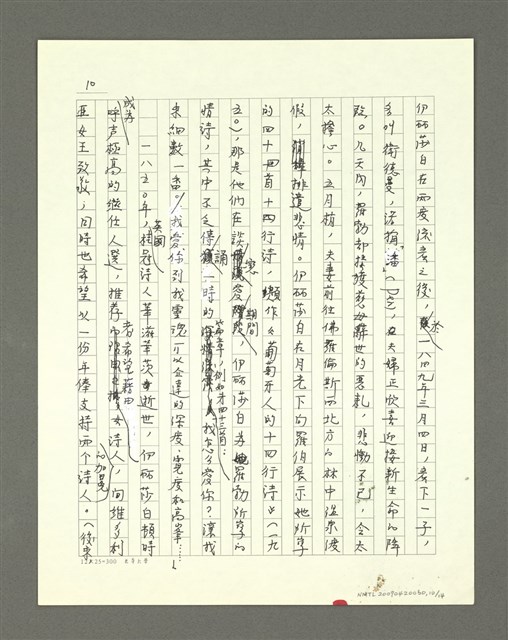 10
伊莉莎白在兩度流產之後,於一八四九年三月四日,產下一子,
名叫衛德曼,諢稱「潘」(Pen),正夫婦正欣喜迎接新生命的降
臨。几天內,羅勃卻接獲慈母辭世的惡札,悲慟不已,令太
太擔心。五月梢,夫妻前往佛羅倫斯西北方的林中温泉渡
假,排遣悲情。伊莉莎白在月光下向羅伯展示她所寫
的四十四首十四行詩,《葡萄牙人的十四行詩》(一八
五〇),那是他們在談戀愛期間,伊莉莎白為羅勃所寫的
情詩,其中不乏傳誦一時的篇章,例如第四十三首:「我怎麼愛你?讓我
來細數一番。/我愛你到我靈魂可以企達的深度、寬度和高峯……」
一八五〇年,英國桂冠詩人華滋華茨逝世,伊莉莎白頓時
成為呼声極高的繼任人選,推荐者希望藉由女詩人的加冕,向維多利
亞女王致敬,同時也希望以一份年俸支持兩个詩人。(後來
12×25=300
NMTL20090420060,10/14